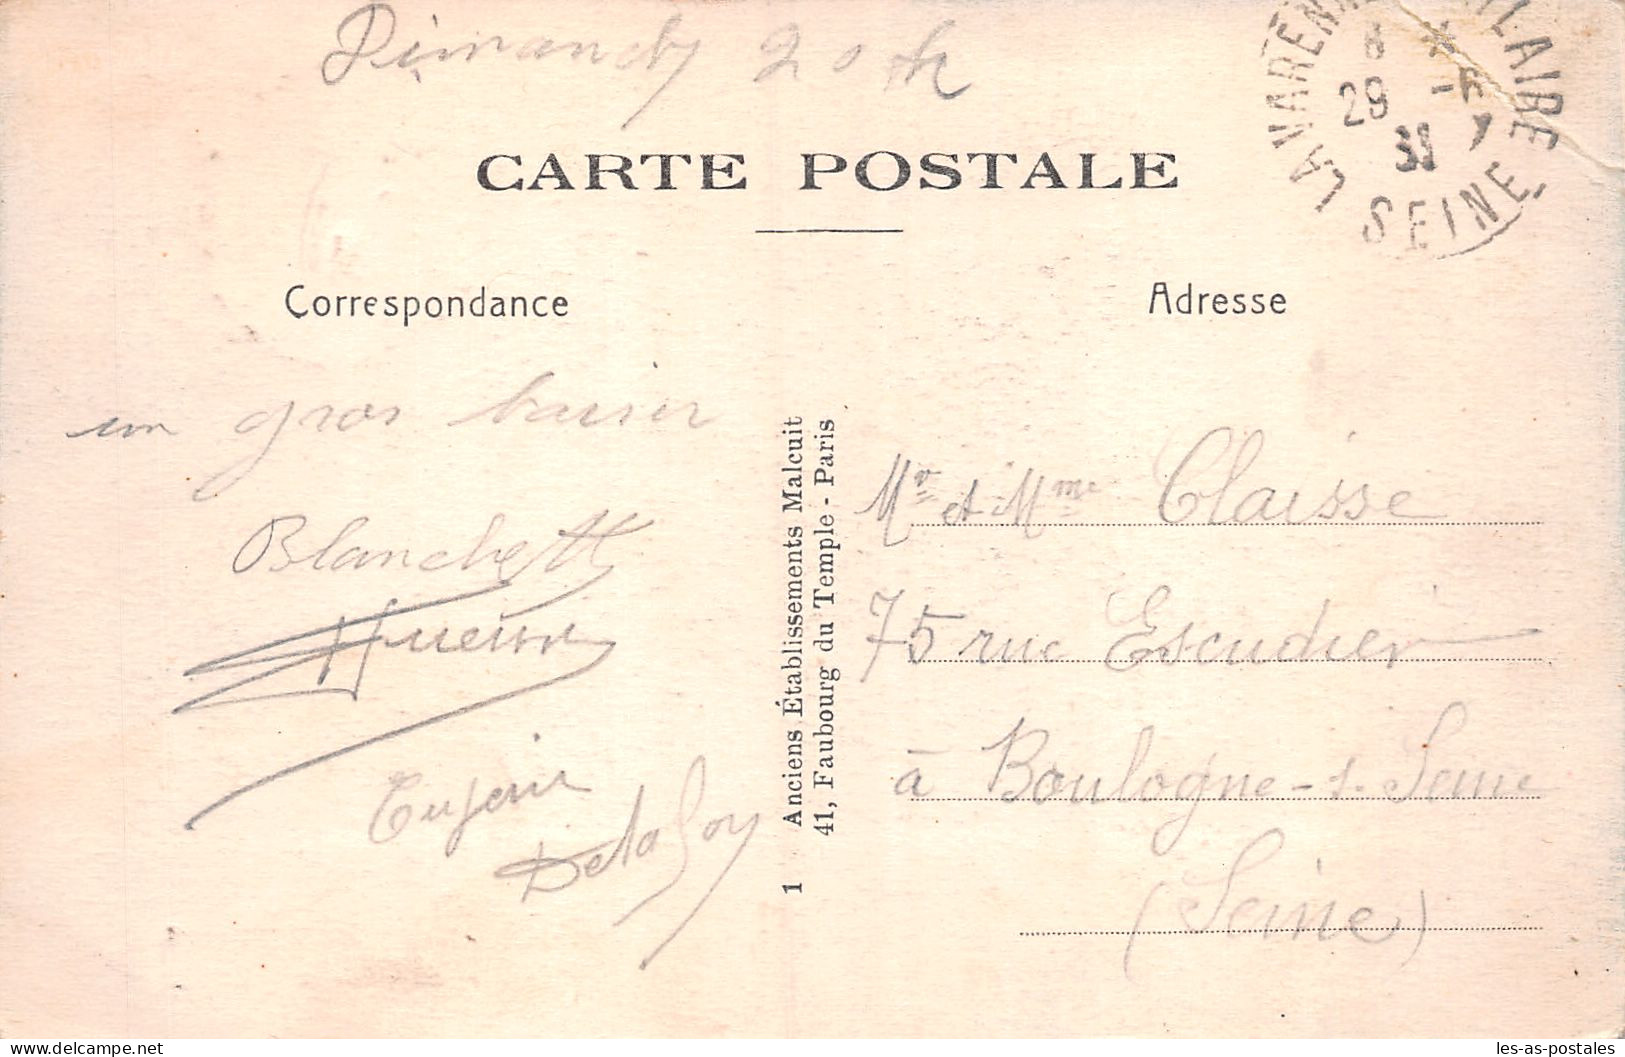 Dimanche 20 h
LA VARENNE HILAIRE
8 *
29 -6
SEINE
CARTE POSTALE
Correspondance
Adresse
un gros baiser
Blanchett
Eugenie
Delafoy
1 Anciens Établissements Malcuit
41, Faubourg du Temple - Paris
Mr et Mme Claisse
75 rue Escudier
à Boulogne-s.-Seine
(Seine)
www.delcampe.net
les-as-postales